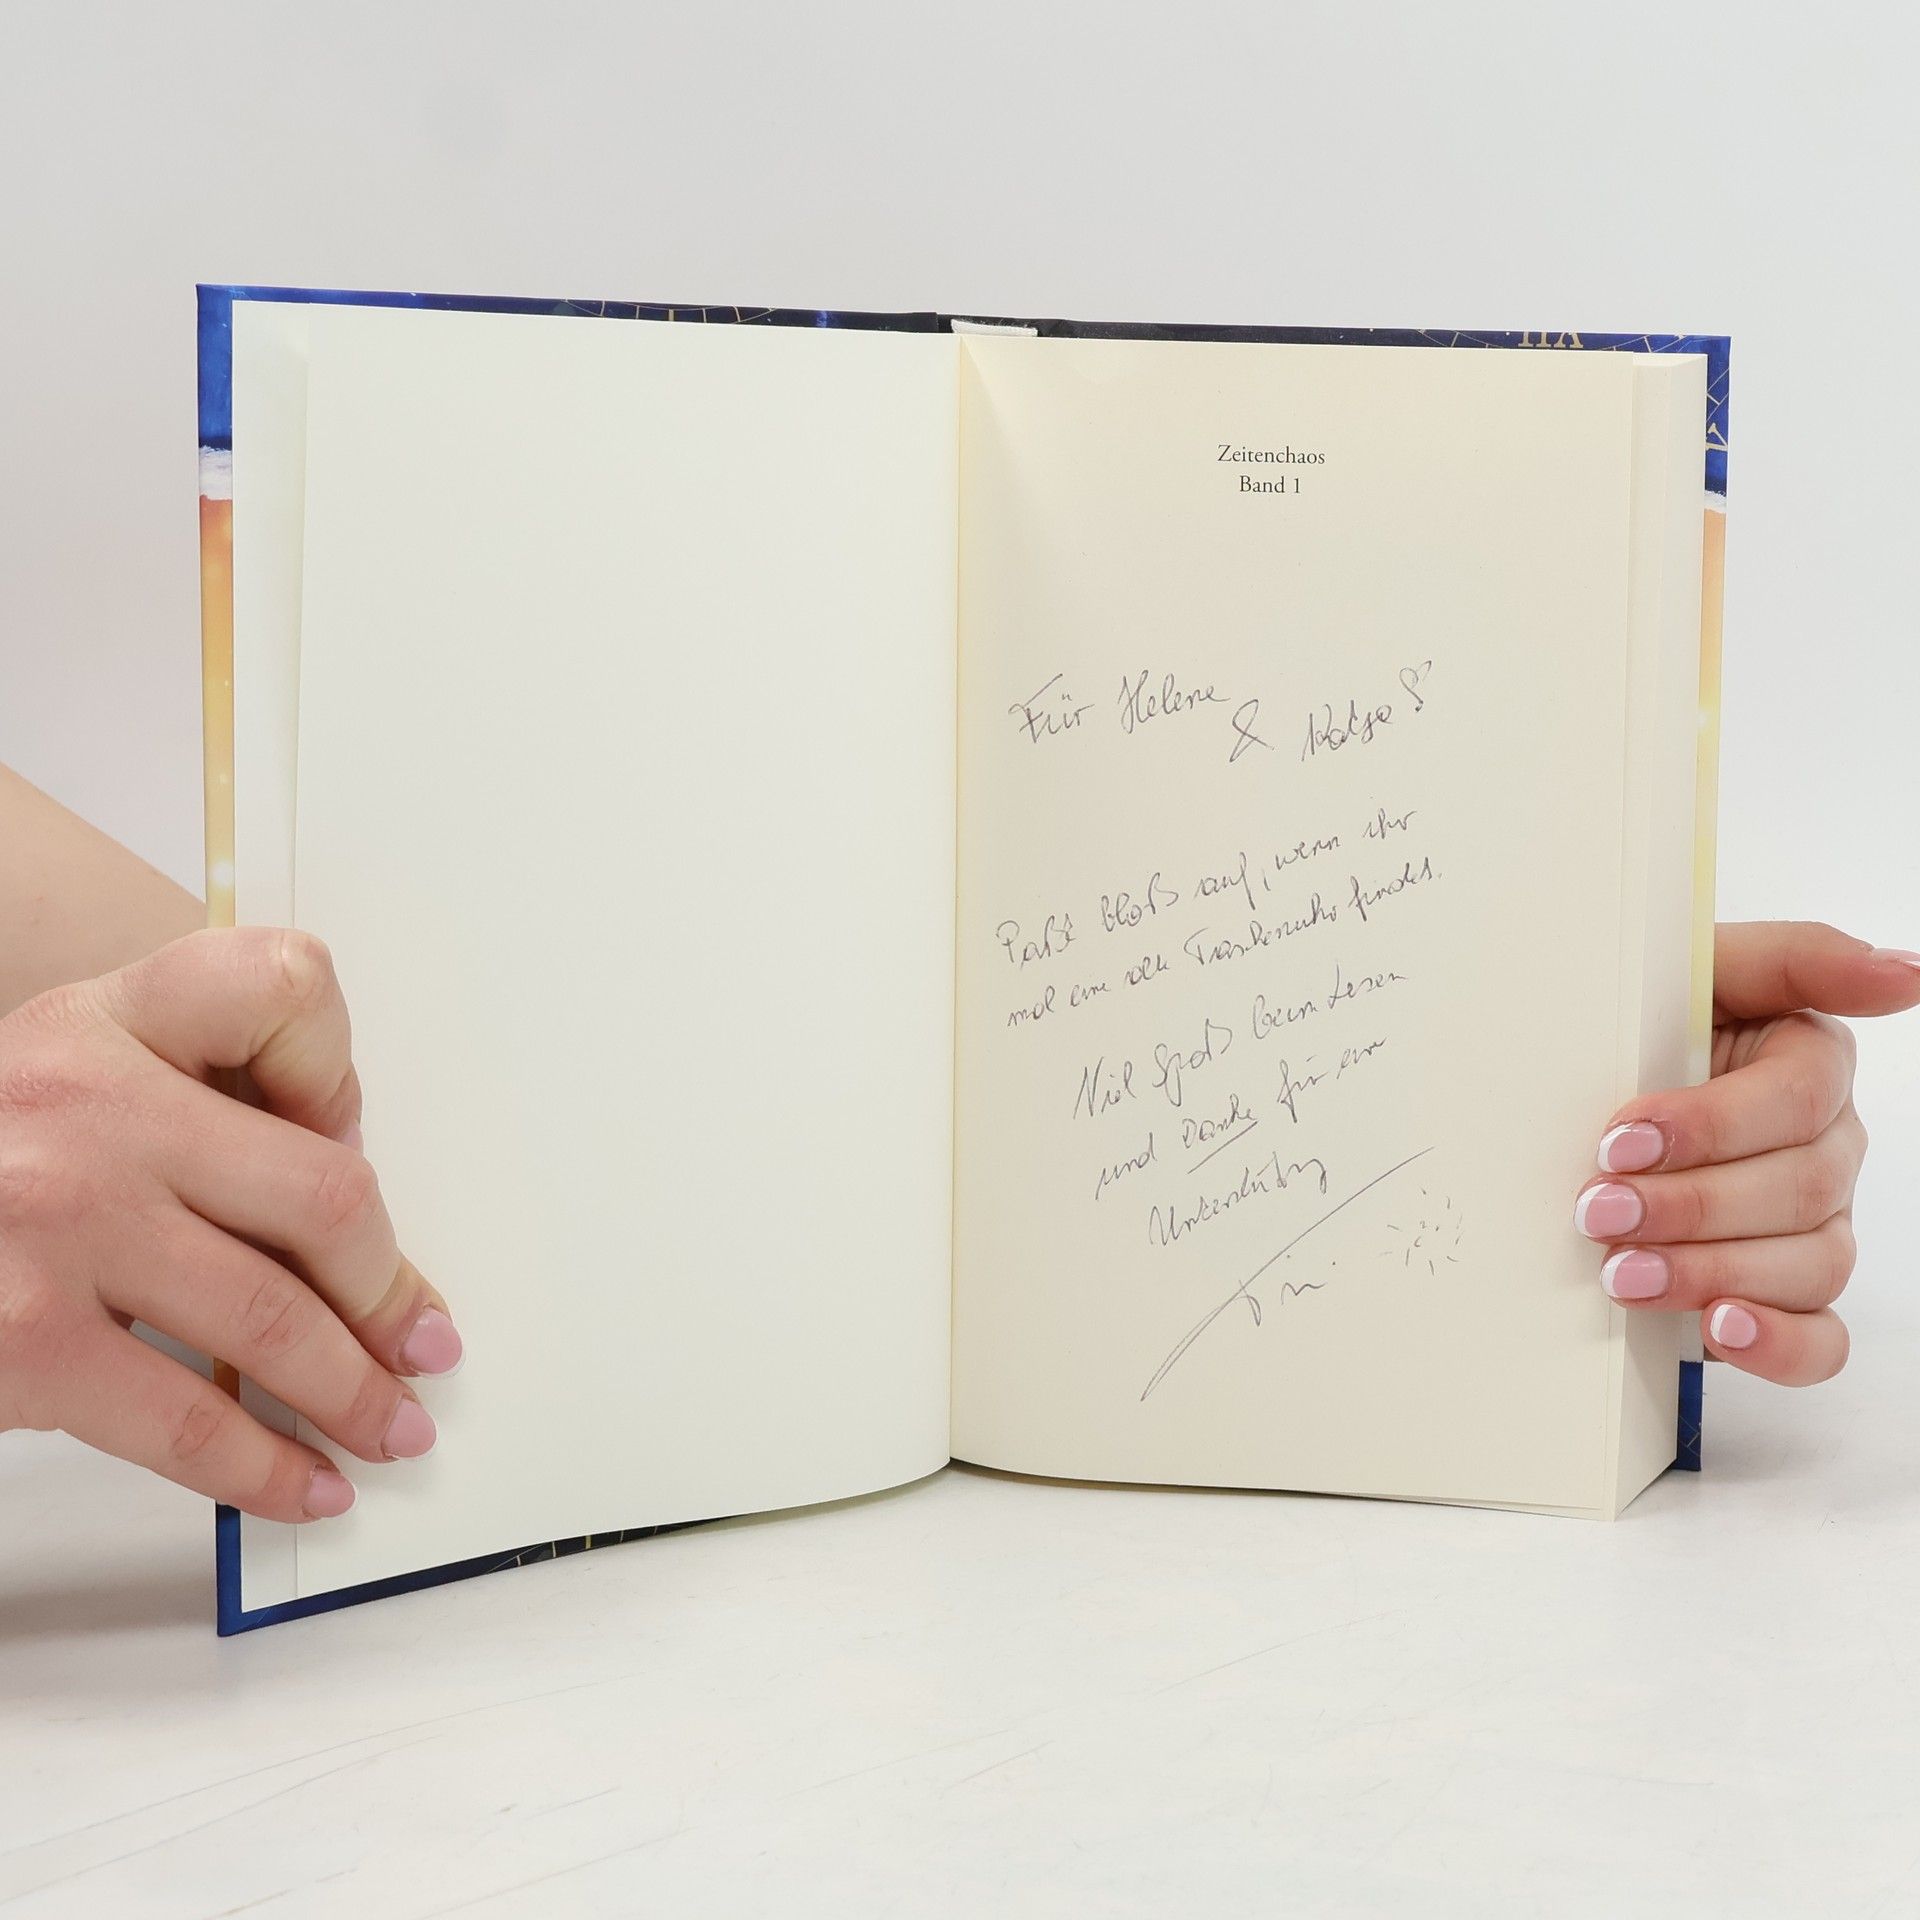 XII
Zeitenchaos
Band 1
Für Helene
& Katja
Paßt bloß auf, wenn ihr
mal eine alte Taschenuhr findet.
Viel Spaß beim Lesen
und Danke für eure
Unterstützung
Tini